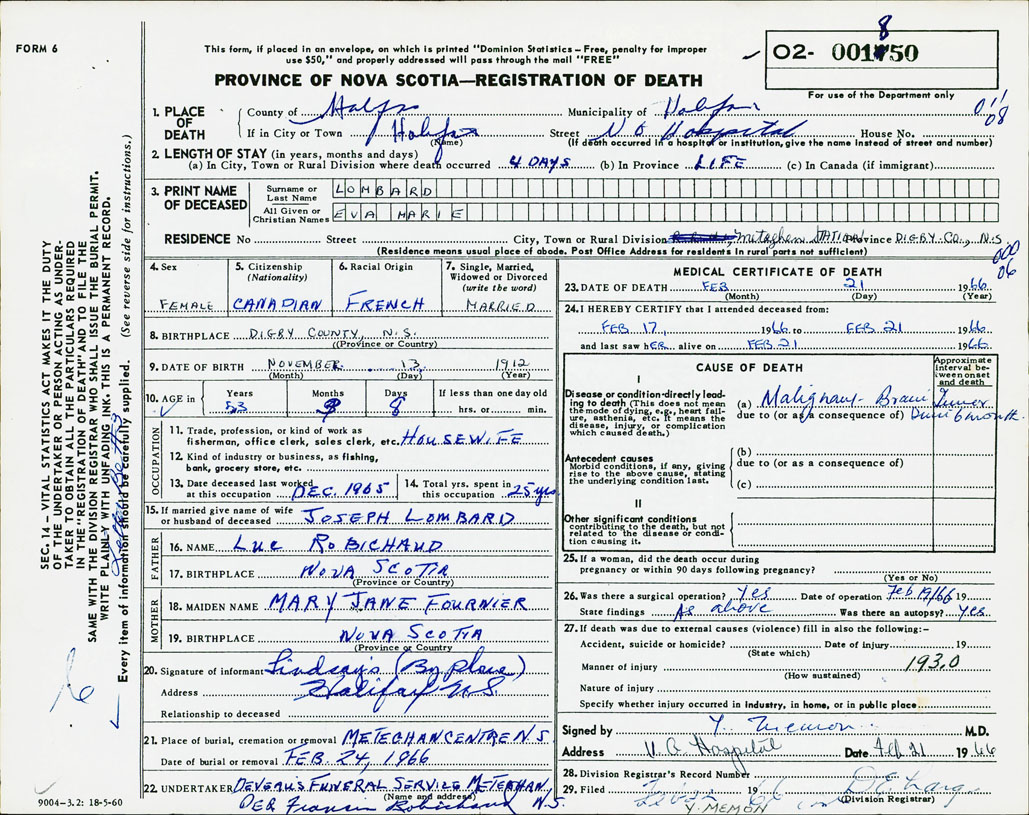 FORM 6
This form, if placed in an envelope, on which is printed "Dominion Statistics – Free, penalty for improper
use $50," and properly addressed will pass through the mail "FREE"
PROVINCE OF NOVA SCOTIA—REGISTRATION OF DEATH
8
02- 001750
For use of the Department only
1. PLACE OF DEATH
County of Halifax Municipality of Halifax
If in City or Town Halifax Street V. G. Hospital House No.
(Name) (If death occurred in a hospital or institution, give the name instead of street and number)
011
08
2. LENGTH OF STAY (in years, months and days)
(a) In City, Town or Rural Division where death occurred 4 DAYS (b) In Province LIFE (c) In Canada (if immigrant)
3. PRINT NAME OF DECEASED
Surname or Last Name LOMBARD
All Given or Christian Names EVA MARIE
RESIDENCE No Street City, Town or Rural Division Meteghan STATION Province DIGBY CO., N.S
(Residence means usual place of abode. Post Office Address for residents in rural parts not sufficient)
000
06
4. Sex FEMALE
5. Citizenship (Nationality) CANADIAN
6. Racial Origin FRENCH
7. Single, Married, Widowed or Divorced (write the word) MARRIED
8. BIRTHPLACE DIGBY COUNTY, N.S.
(Province or Country)
9. DATE OF BIRTH NOVEMBER 13 1912
(Month) (Day) (Year)
10. AGE in Years 53 Months 3 Days 8 If less than one day old hrs. or min.
OCCUPATION
11. Trade, profession, or kind of work as
fisherman, office clerk, sales clerk, etc. HOUSEWIFE
12. Kind of industry or business, as fishing,
bank, grocery store, etc.
13. Date deceased last worked at this occupation DEC. 1965
14. Total yrs. spent in this occupation 25 yrs
15. If married give name of wife
or husband of deceased JOSEPH LOMBARD
FATHER
16. NAME LUC ROBICHAUD
17. BIRTHPLACE NOVA SCOTIA
(Province or Country)
MOTHER
18. MAIDEN NAME MARY JANE FOURNIER
19. BIRTHPLACE NOVA SCOTIA
(Province or Country)
20. Signature of informant Lindsay's (By Phone)
Address Halifax N.S.
Relationship to deceased
21. Place of burial, cremation or removal METEGHAN CENTRE N S
Date of burial or removal FEB. 24, 1966
22 UNDERTAKER DEVEAU'S FUNERAL SERVICE METEGHAN
(Name and address)
PER Francis Robichaud N.S.
9004–3.2: 18-5-60
MEDICAL CERTIFICATE OF DEATH
23. DATE OF DEATH FEB 21 1966
(Month) (Day) (Year)
24. I HEREBY CERTIFY that I attended deceased from:
FEB 17, 1966 to FEB 21 1966
and last saw hER alive on FEB 21 1966
CAUSE OF DEATH
Approximate interval between onset and death
I
Disease or condition directly leading to death (This does not mean the mode of dying, e.g., heart failure, asthenia, etc. It means the disease, injury, or complication which caused death.)
(a) Malignant Brain Tumor
due to (or as a consequence of) 6 month
Antecedent causes
Morbid conditions, if any, giving rise to the above cause, stating the underlying condition last.
(b)
due to (or as a consequence of)
(c)
II
Other significant conditions contributing to the death, but not related to the disease or condition causing it.
25. If a woman, did the death occur during
pregnancy or within 90 days following pregnancy?
(Yes or No)
26. Was there a surgical operation? Yes Date of operation Feb 19/66 19
State findings As above Was there an autopsy? Yes
27. If death was due to external causes (violence) fill in also the following:–
Accident, suicide or homicide? Date of injury 19
(State which)
Manner of injury 193.0
(How sustained)
Nature of injury
Specify whether injury occurred in Industry, in home, or in public place
Signed by Y. Memon M.D.
Address V. G. Hospital Date Feb 21 1966
28. Division Registrar's Record Number
29. Filed 196
(Division Registrar)
Y. MEMON
SEC. 14 – VITAL STATISTICS ACT MAKES IT THE DUTY
OF THE UNDERTAKER OR PERSON ACTING AS UNDER-
TAKER TO OBTAIN ALL THE PARTICULARS REQUIRED
IN THE "REGISTRATION OF DEATH" AND TO FILE THE
SAME WITH THE DIVISION REGISTRAR WHO SHALL ISSUE THE BURIAL PERMIT.
WRITE PLAINLY WITH UNFADING INK. THIS IS A PERMANENT RECORD.
Every item of information should be carefully supplied. (See reverse side for instructions.)